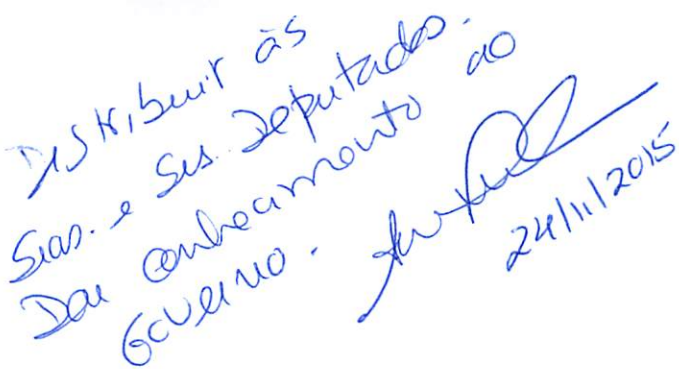 Distribuir às
Sras. e Srs. Deputados.
Dar conhecimento ao
Governo.
24/11/2015